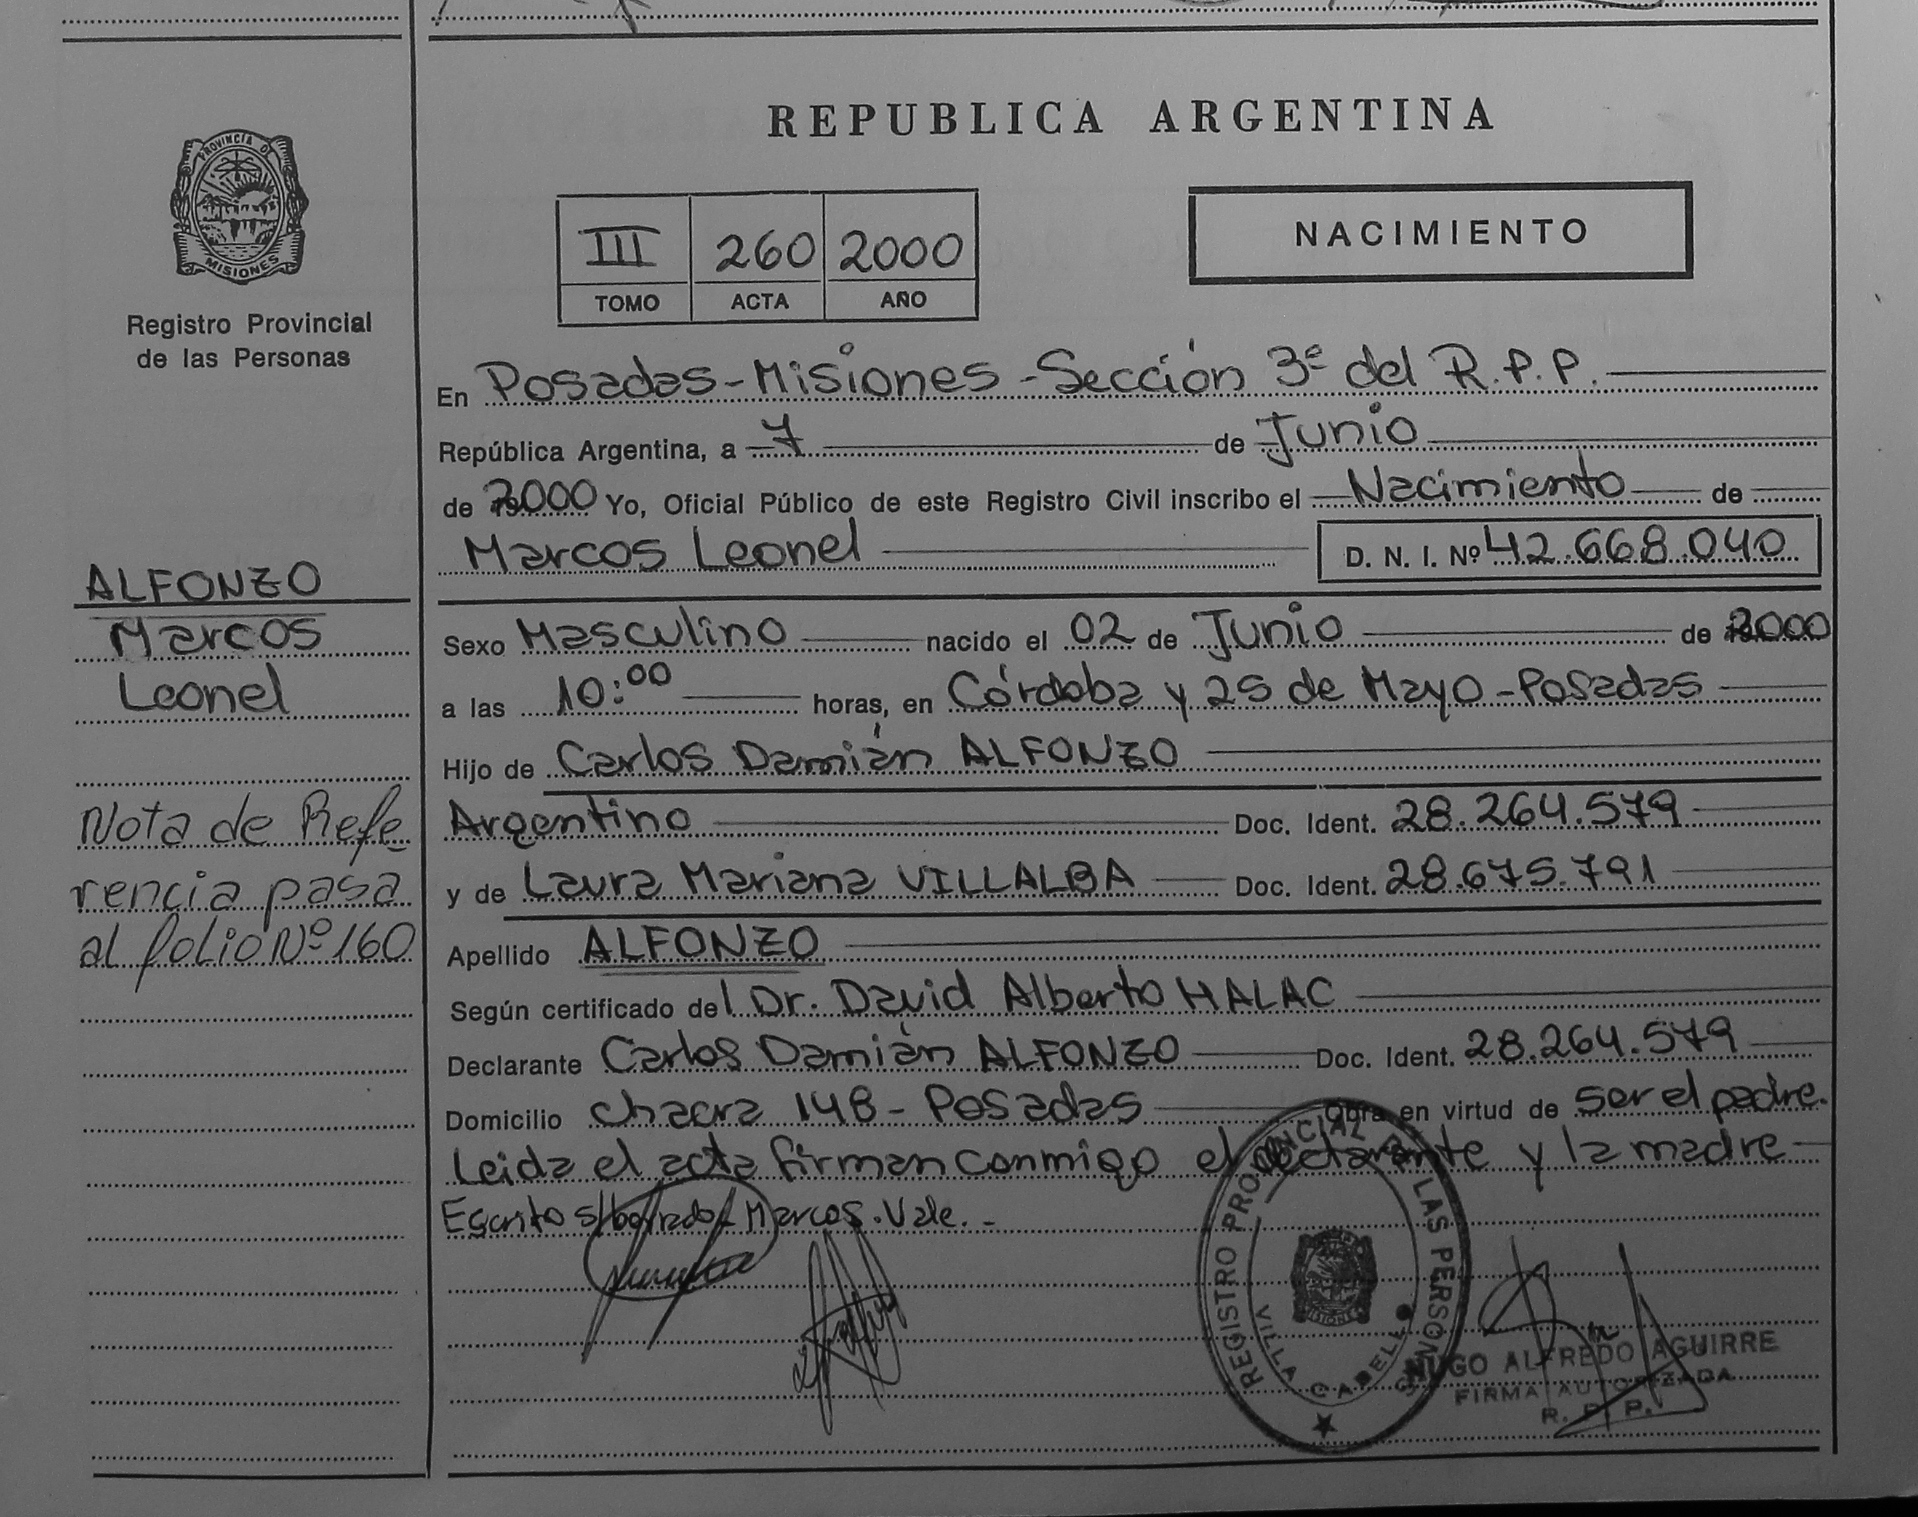 REPUBLICA ARGENTINA
PROVINCIA DE
MISIONES
Registro Provincial
de las Personas
III 260 2000
TOMO ACTA AÑO
NACIMIENTO
En Posadas - Misiones - Sección 3ª del R.P.P.
República Argentina, a 7 de Junio
de 2000 Yo, Oficial Público de este Registro Civil inscribo el Nacimiento de
Marcos Leonel D. N. I. Nº 42.668.040
ALFONZO
Marcos
Leonel
Sexo Masculino nacido el 02 de Junio de 2000
a las 10:00 horas, en Córdoba y 25 de Mayo - Posadas
Hijo de Carlos Damián ALFONZO
Argentino Doc. Ident. 28.264.579
y de Laura Mariana VILLALBA Doc. Ident. 28.675.791
Nota de Refe
rencia pasa
al folio Nº 160
Apellido ALFONZO
Según certificado del Dr. David Alberto HALAC
Declarante Carlos Damián ALFONZO Doc. Ident. 28.264.579
Domicilio chacra 148 - Posadas Obra en virtud de ser el padre.
Leida el acta firman conmigo el declarante y la madre
Escrito s/borrado: Marcos. Vale. -
REGISTRO PROVINCIAL DE LAS PERSONAS
VILLA CABELLO
HUGO ALFREDO AGUIRRE
FIRMA AUTORIZADA
R. P. P.